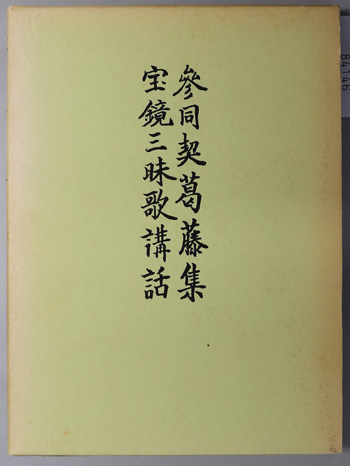 參同契葛藤集
宝鏡三昧歌講話
84146